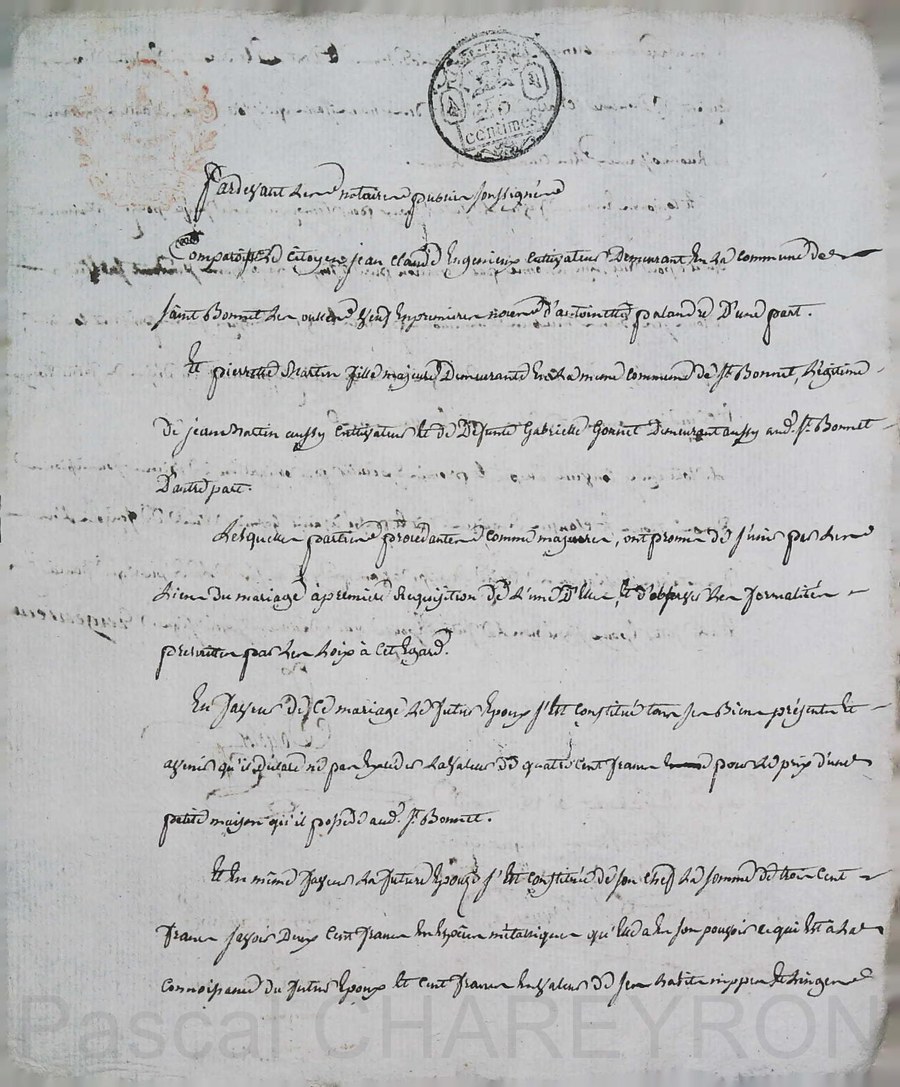 25
centimes
Pardevant les notaires publics soussignés
Comparoissent citoyens jean claude Ingenieux cultivateur demeurant en la commune de
saint Bonnet les oules veuf en premieres noces d'antoinette palandre d'une part.
Et pierrette Mattin fille majeure demeurante en la meme commune de St. Bonnet, légitime
de jean Mattin aussy cultivateur et de défunte Gabrielle Gonnet demeurant aussy aud. St. Bonnet
d'autre part.
Lesquelles parties procédantes comme majeures, ont promis de s'unir par les
liens du mariage à premiere requisition de l'une d'elles, et d'observer les formalités
prescrittes par les loix à cet égard.
En faveur de ce mariage le futur époux s'est constitué tous ses biens présents et
avenir qu'il déclare ne pas exceder la valeur de quatre cent francs pour le prix d'une
petite maison qu'il possede aud. St. Bonnet.
Et en même faveur la future épouse s'est constituée de son chef la somme de trois cent
francs savoir deux cent francs en espèces métalliques qu'elle a en son pouvoir ce qui est à la
connoissance du futur époux et cent francs en valeur de ses habits nippes et linges
Pascal CHAREYRON